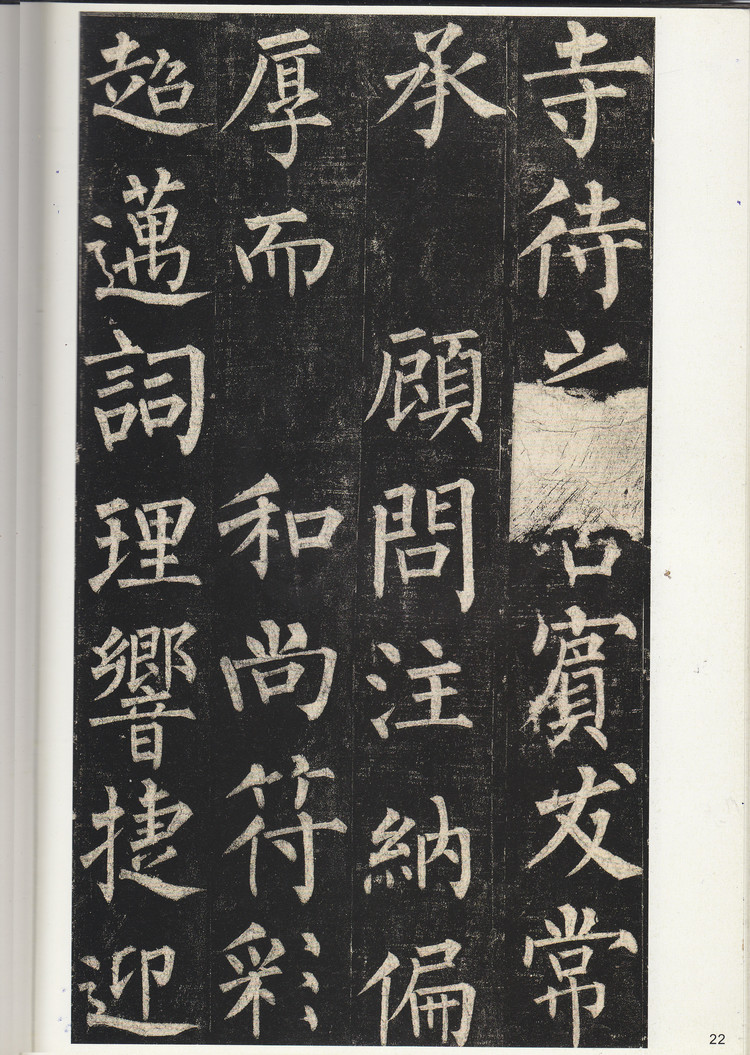 寺待之賓友常
承 顧問注納偏
厚而 和尚符彩
超邁詞理響捷迎
22